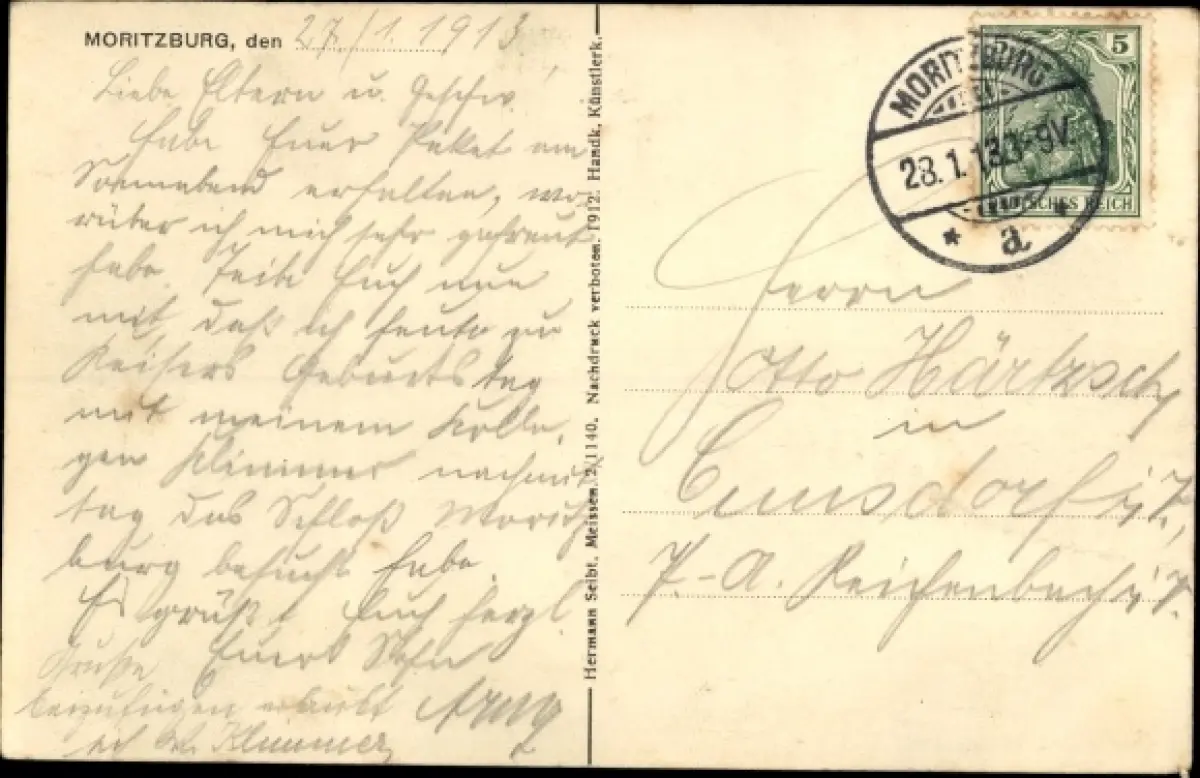 MORITZBURG, den 27/1. 1913.
Liebe Eltern u. Geschw.!
Habe Euer Paket am
Sonnabend erhalten, wo-
rüber ich mich sehr gefreut
habe. Teile Euch nun
mit, daß ich heute zu
Kaisers Geburtstag
mit meinem Kolle-
gen Klimmer nachmit-
tag das Schloß Moritz-
burg besucht habe.
Es grüßt Euch herzl.
Euer Sohn
Grüße
beizufügen erlaubt
sich W. Klimmer
Hermann Seibt, Meissen. 2/1140. Nachdruck verboten. 1912. Handk. Künstlerk.
MORITZBURG
28.1.13. 8-9V.
* a *
5 5
DEUTSCHES REICH
Herrn
Otto Härtzsch
in
Cunsdorf i. V.,
P.-A. Reichenbach i. V.